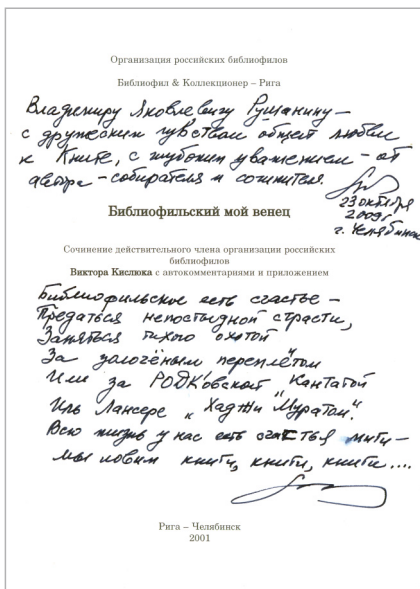 Организация российских библиофилов
Библиофил & Коллекционер – Рига
Владимиру Яковлевичу Рушанину –
с дружеским чувством общей любви
к Книге, с глубоким уважением – от
автора – собирателя и сочинителя.
23 октября
2009 г
г. Челябинск
Библиофильский мой венец
Сочинение действительного члена организации российских
библиофилов
Виктора Кислюка с автокомментариями и приложением
Библиофильское есть счастье –
Предаться непостыдной страсти,
Заняться тихою охотой
За золочёным переплётом
Или за РОДК'овской Кантатой
Иль Лансере к "Хаджи Муратом".
Всю жизнь у нас есть счастья миги –
мы ловим книги, книги, книги....
Рига – Челябинск
2001